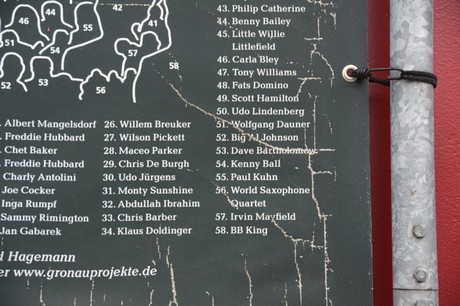 42
46
55
41
45
54
57
51
52
53
56
58
43. Philip Catherine
44. Benny Bailey
45. Little Willie
Littlefield
46. Carla Bley
47. Tony Williams
48. Fats Domino
49. Scott Hamilton
50. Udo Lindenberg
51. Wolfgang Dauner
52. Big Al Johnson
53. Dave Bartholomew
54. Kenny Ball
55. Paul Kuhn
56. World Saxophone
Quartet
57. Irvin Mayfield
58. BB King
. Albert Mangelsdorf
. Freddie Hubbard
. Chet Baker
. Freddie Hubbard
Charly Antolini
Joe Cocker
Inga Rumpf
Sammy Rimington
Jan Gabarek
26. Willem Breuker
27. Wilson Pickett
28. Maceo Parker
29. Chris De Burgh
30. Udo Jürgens
31. Monty Sunshine
32. Abdullah Ibrahim
33. Chris Barber
34. Klaus Doldinger
d Hagemann
er www.gronauprojekte.de